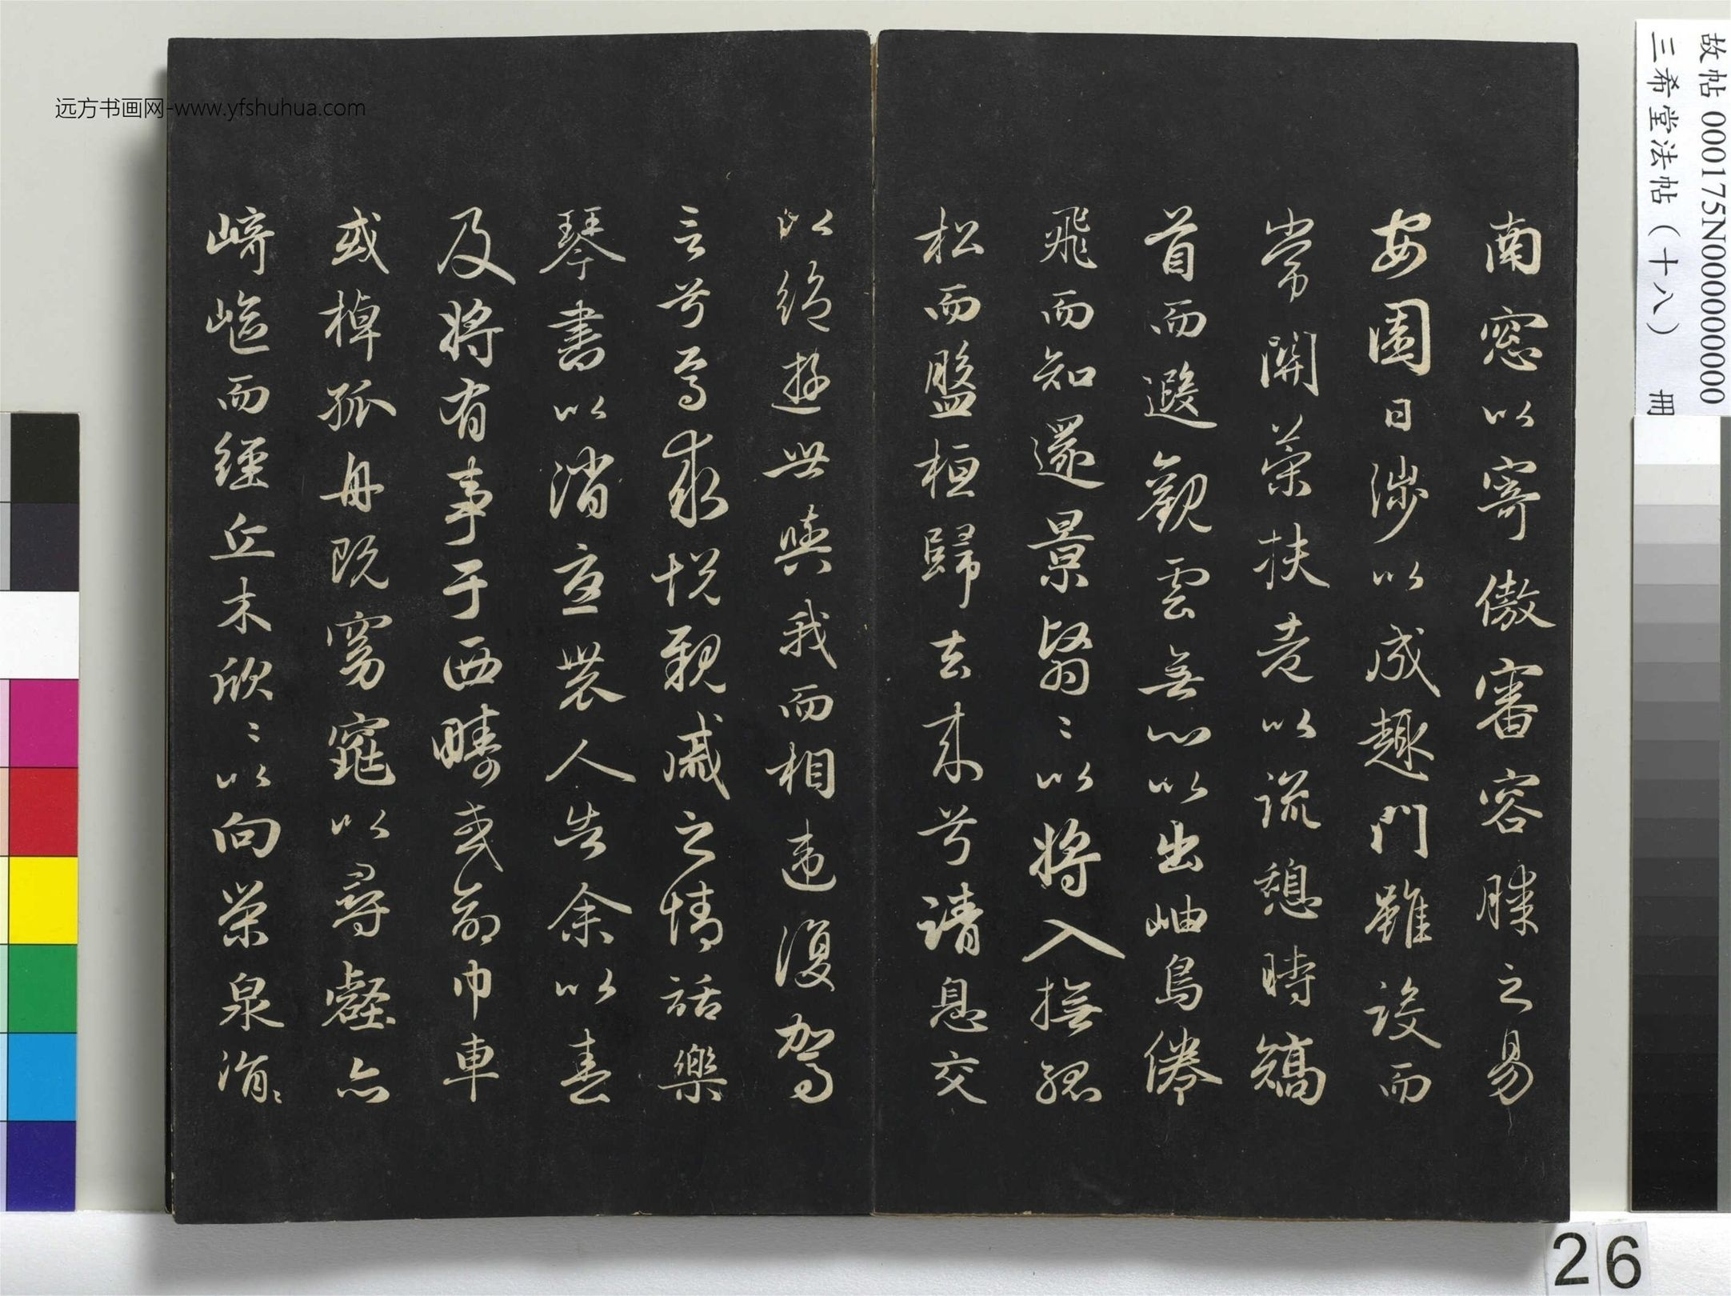 南窓以寄傲審容膝之易
安園日涉以成趣門雖設而
常關策扶老以流憩時矯
首而遐觀雲無心以出岫鳥倦
飛而知還景翳〻以將入撫孤
松而盤桓歸去來兮請息交
以絕遊世與我而相違復駕
言兮焉求悅親戚之情話樂
琴書以消憂農人告余以春
及將有事于西疇或命巾車
或棹孤舟既窈窕以尋壑亦
崎嶇而經丘木欣〻以向榮泉涓〻
远方书画网-www.yfshuhua.com
故帖 000175N000000000
三希堂法帖（十八） 冊
26